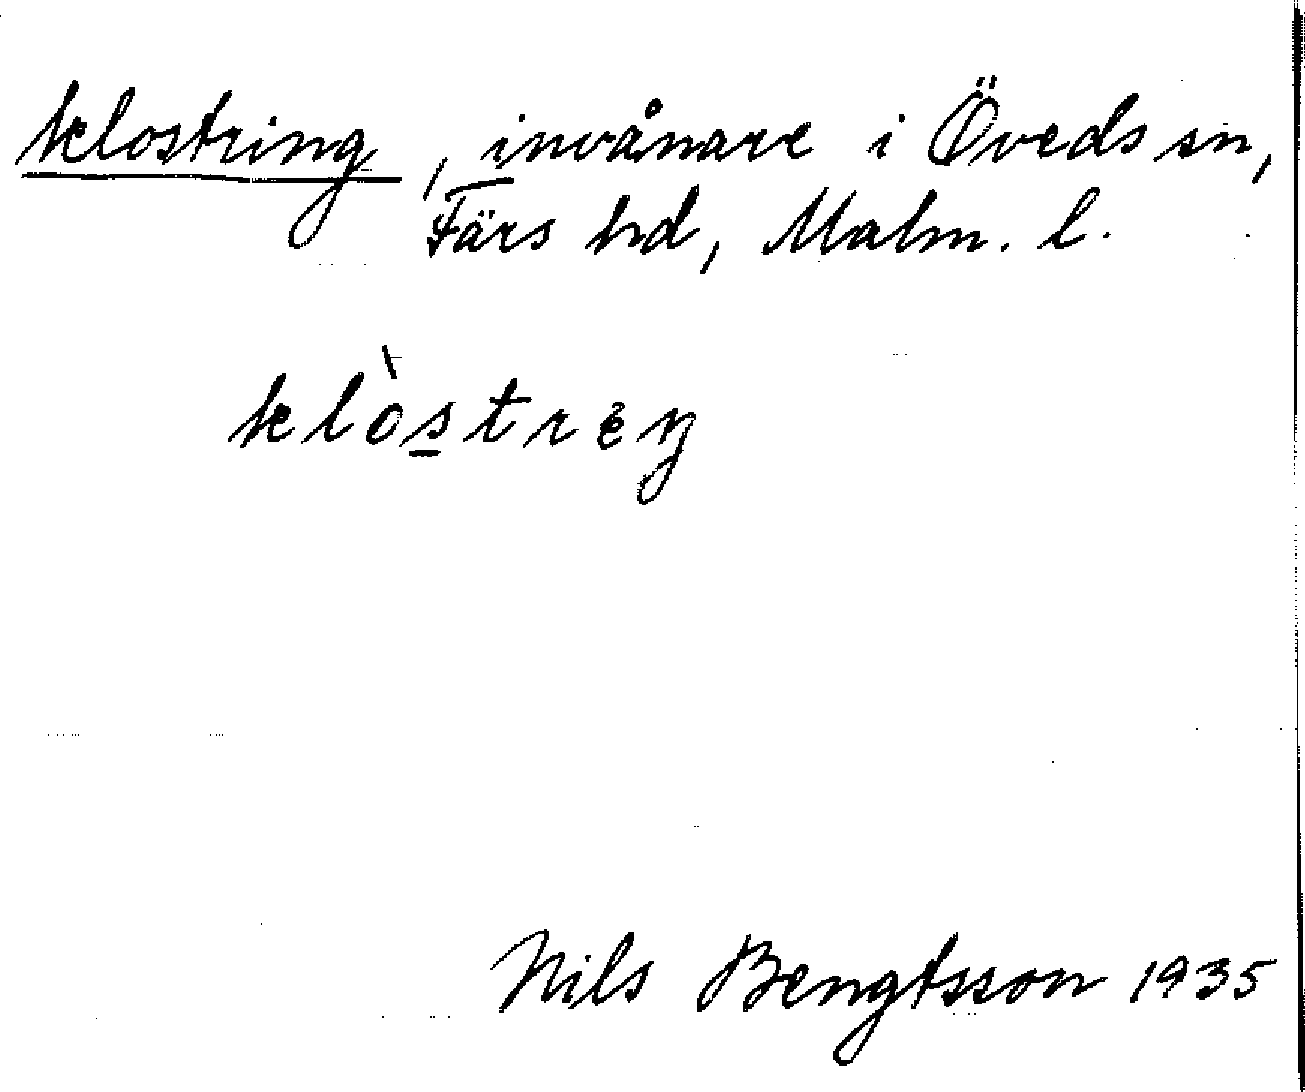 klostring, invånare i Öveds sn,
Färs hd, Malm. l.
klòstreŋ
Nils Bengtsson 1935